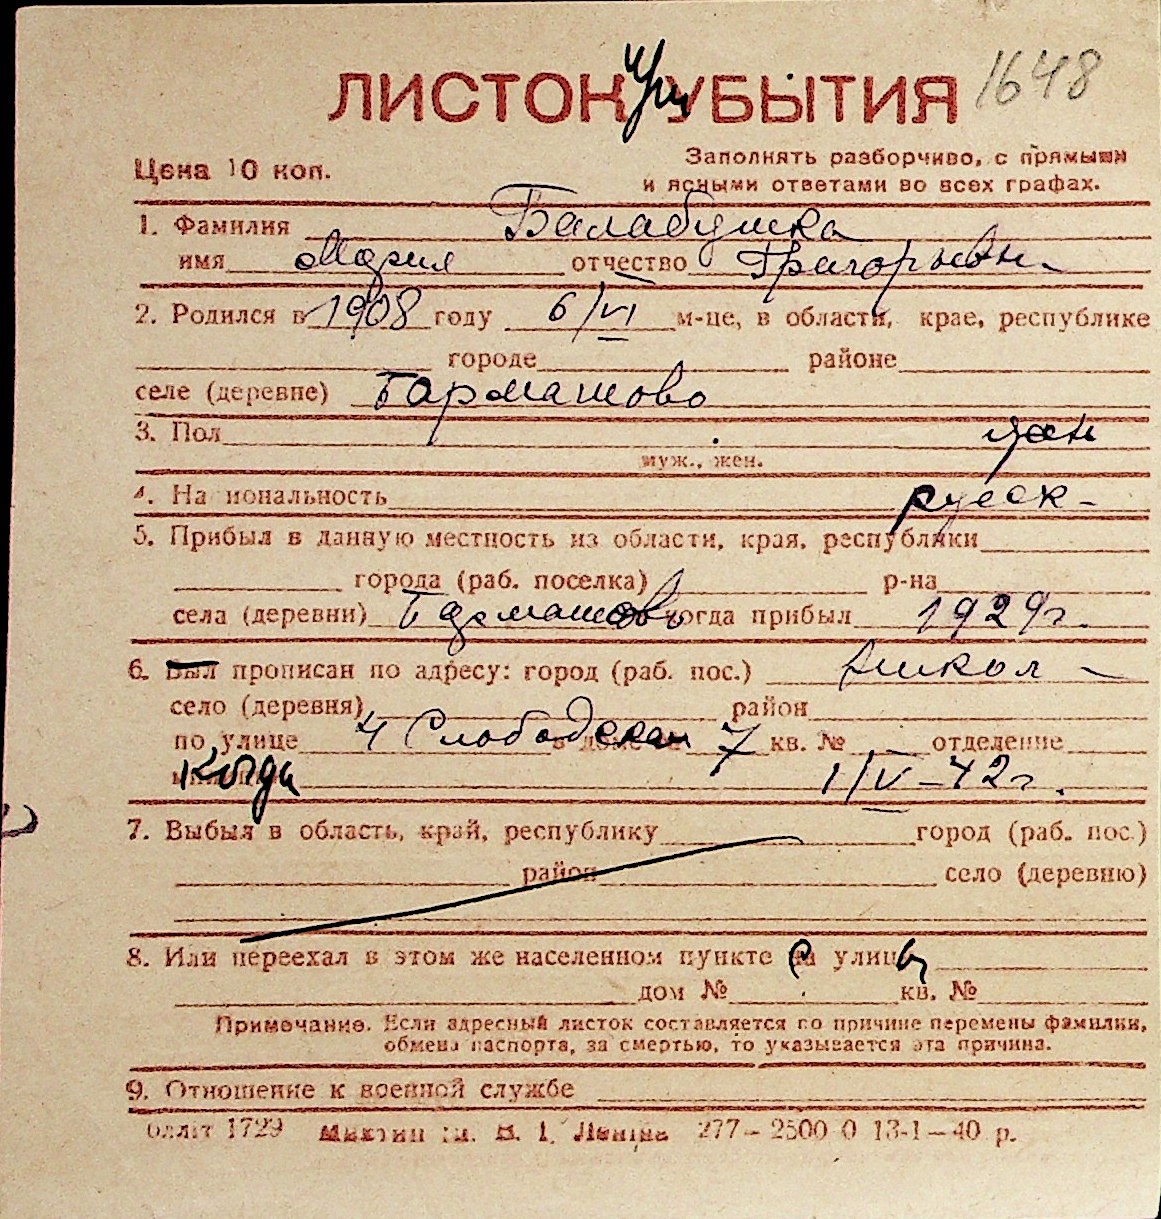 ЛИСТОК УБЫТИЯ 1648
Цена 10 коп.
Заполнять разборчиво, с прямыми
и ясными ответами во всех графах.
1. Фамилия Балабушка
имя Мария отчество Григорьевн.
2. Родился в 1908 году 6/VI м-це, в области, крае, республике
городе районе
селе (деревне) Гармашово
3. Пол жен
муж., жен.
4. На иональность русск-
5. Прибыл в данную местность из области, края, республики
города (раб. поселка) р-на
села (деревни) Гармашово когда прибыл 1929г.
6. Был прописан по адресу: город (раб. пос.) Никол-
село (деревня) район
по улице 4 Слободская 7 кв. № – отделение
Когда 1/V-42г.
7. Выбыл в область, край, республику город (раб. пос.)
район село (деревню)
8. Или переехал в этом же населенном пункте с улицы
дом № кв. №
Примечание. Если адресный листок составляется по причине перемены фамилии,
обмена паспорта, за смертью, то указывается эта причина.
9. Отношение к военной службе
1729 В. І. Леніна 277–2500 0 13-1–40 р.